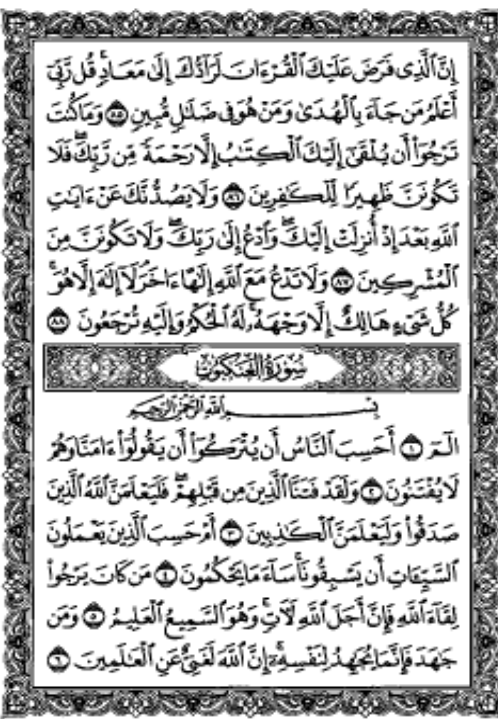 إِنَّ ٱلَّذِى فَرَضَ عَلَيْكَ ٱلْقُرْءَانَ لَرَآدُّكَ إِلَىٰ مَعَادٍۚ قُل رَّبِّىٓ
أَعْلَمُ مَن جَآءَ بِٱلْهُدَىٰ وَمَنْ هُوَ فِى ضَلَٰلٍ مُّبِينٍ ٨٥ وَمَا كُنتَ
تَرْجُوٓا۟ أَن يُلْقَىٰٓ إِلَيْكَ ٱلْكِتَٰبُ إِلَّا رَحْمَةً مِّن رَّبِّكَۖ فَلَا
تَكُونَنَّ ظَهِيرًا لِّلْكَٰفِرِينَ ٨٦ وَلَا يَصُدُّنَّكَ عَنْ ءَايَٰتِ
ٱللَّهِ بَعْدَ إِذْ أُنزِلَتْ إِلَيْكَۖ وَٱدْعُ إِلَىٰ رَبِّكَۖ وَلَا تَكُونَنَّ مِنَ
ٱلْمُشْرِكِينَ ٨٧ وَلَا تَدْعُ مَعَ ٱللَّهِ إِلَٰهًا ءَاخَرَۘ لَآ إِلَٰهَ إِلَّا هُوَۚ
كُلُّ شَىْءٍ هَالِكٌ إِلَّا وَجْهَهُۥۚ لَهُ ٱلْحُكْمُ وَإِلَيْهِ تُرْجَعُونَ ٨٨
سُورَةُ العَنكَبُوتِ
بِسْمِ ٱللَّهِ ٱلرَّحْمَٰنِ ٱلرَّحِيمِ
الٓمٓ ١ أَحَسِبَ ٱلنَّاسُ أَن يُتْرَكُوٓا۟ أَن يَقُولُوٓا۟ ءَامَنَّا وَهُمْ
لَا يُفْتَنُونَ ٢ وَلَقَدْ فَتَنَّا ٱلَّذِينَ مِن قَبْلِهِمْۖ فَلَيَعْلَمَنَّ ٱللَّهُ ٱلَّذِينَ
صَدَقُوا۟ وَلَيَعْلَمَنَّ ٱلْكَٰذِبِينَ ٣ أَمْ حَسِبَ ٱلَّذِينَ يَعْمَلُونَ
ٱلسَّيِّـَٔاتِ أَن يَسْبِقُونَاۚ سَآءَ مَا يَحْكُمُونَ ٤ مَن كَانَ يَرْجُوا۟
لِقَآءَ ٱللَّهِ فَإِنَّ أَجَلَ ٱللَّهِ لَءَاتٍۚ وَهُوَ ٱلسَّمِيعُ ٱلْعَلِيمُ ٥ وَمَن
جَٰهَدَ فَإِنَّمَا يُجَٰهِدُ لِنَفْسِهِۦٓۚ إِنَّ ٱللَّهَ لَغَنِىٌّ عَنِ ٱلْعَٰلَمِينَ ٦